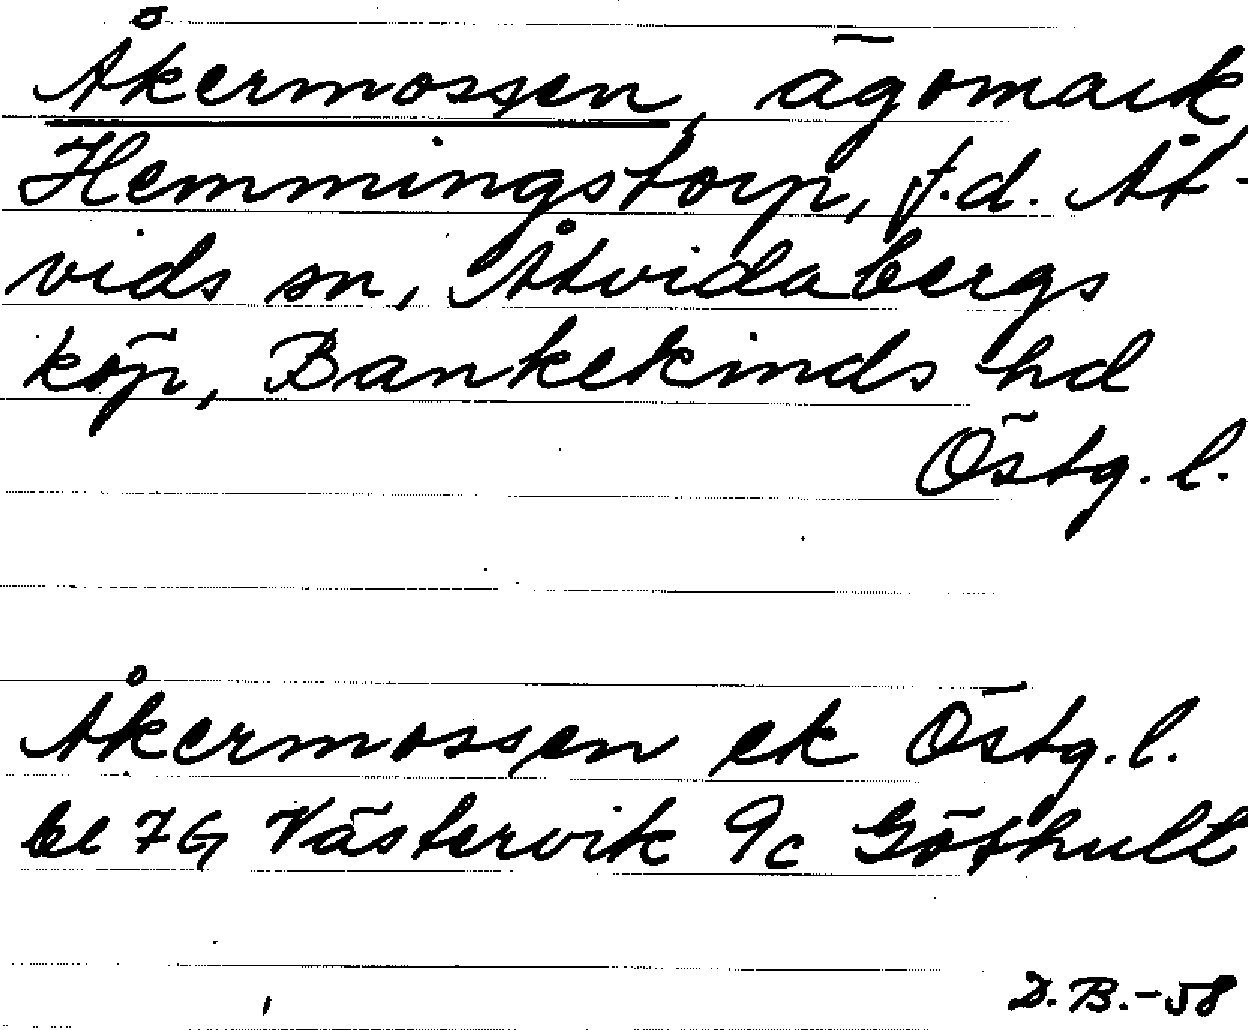 Åkermossen, ägomark
Hemmingstorp, f.d. Åt-
vids sn, Åtvidabergs
köp, Bankekinds hd
Östg. l.
Åkermossen ek Östg. l.
bl 7G Västervik 9c Göthult
D.B.-58